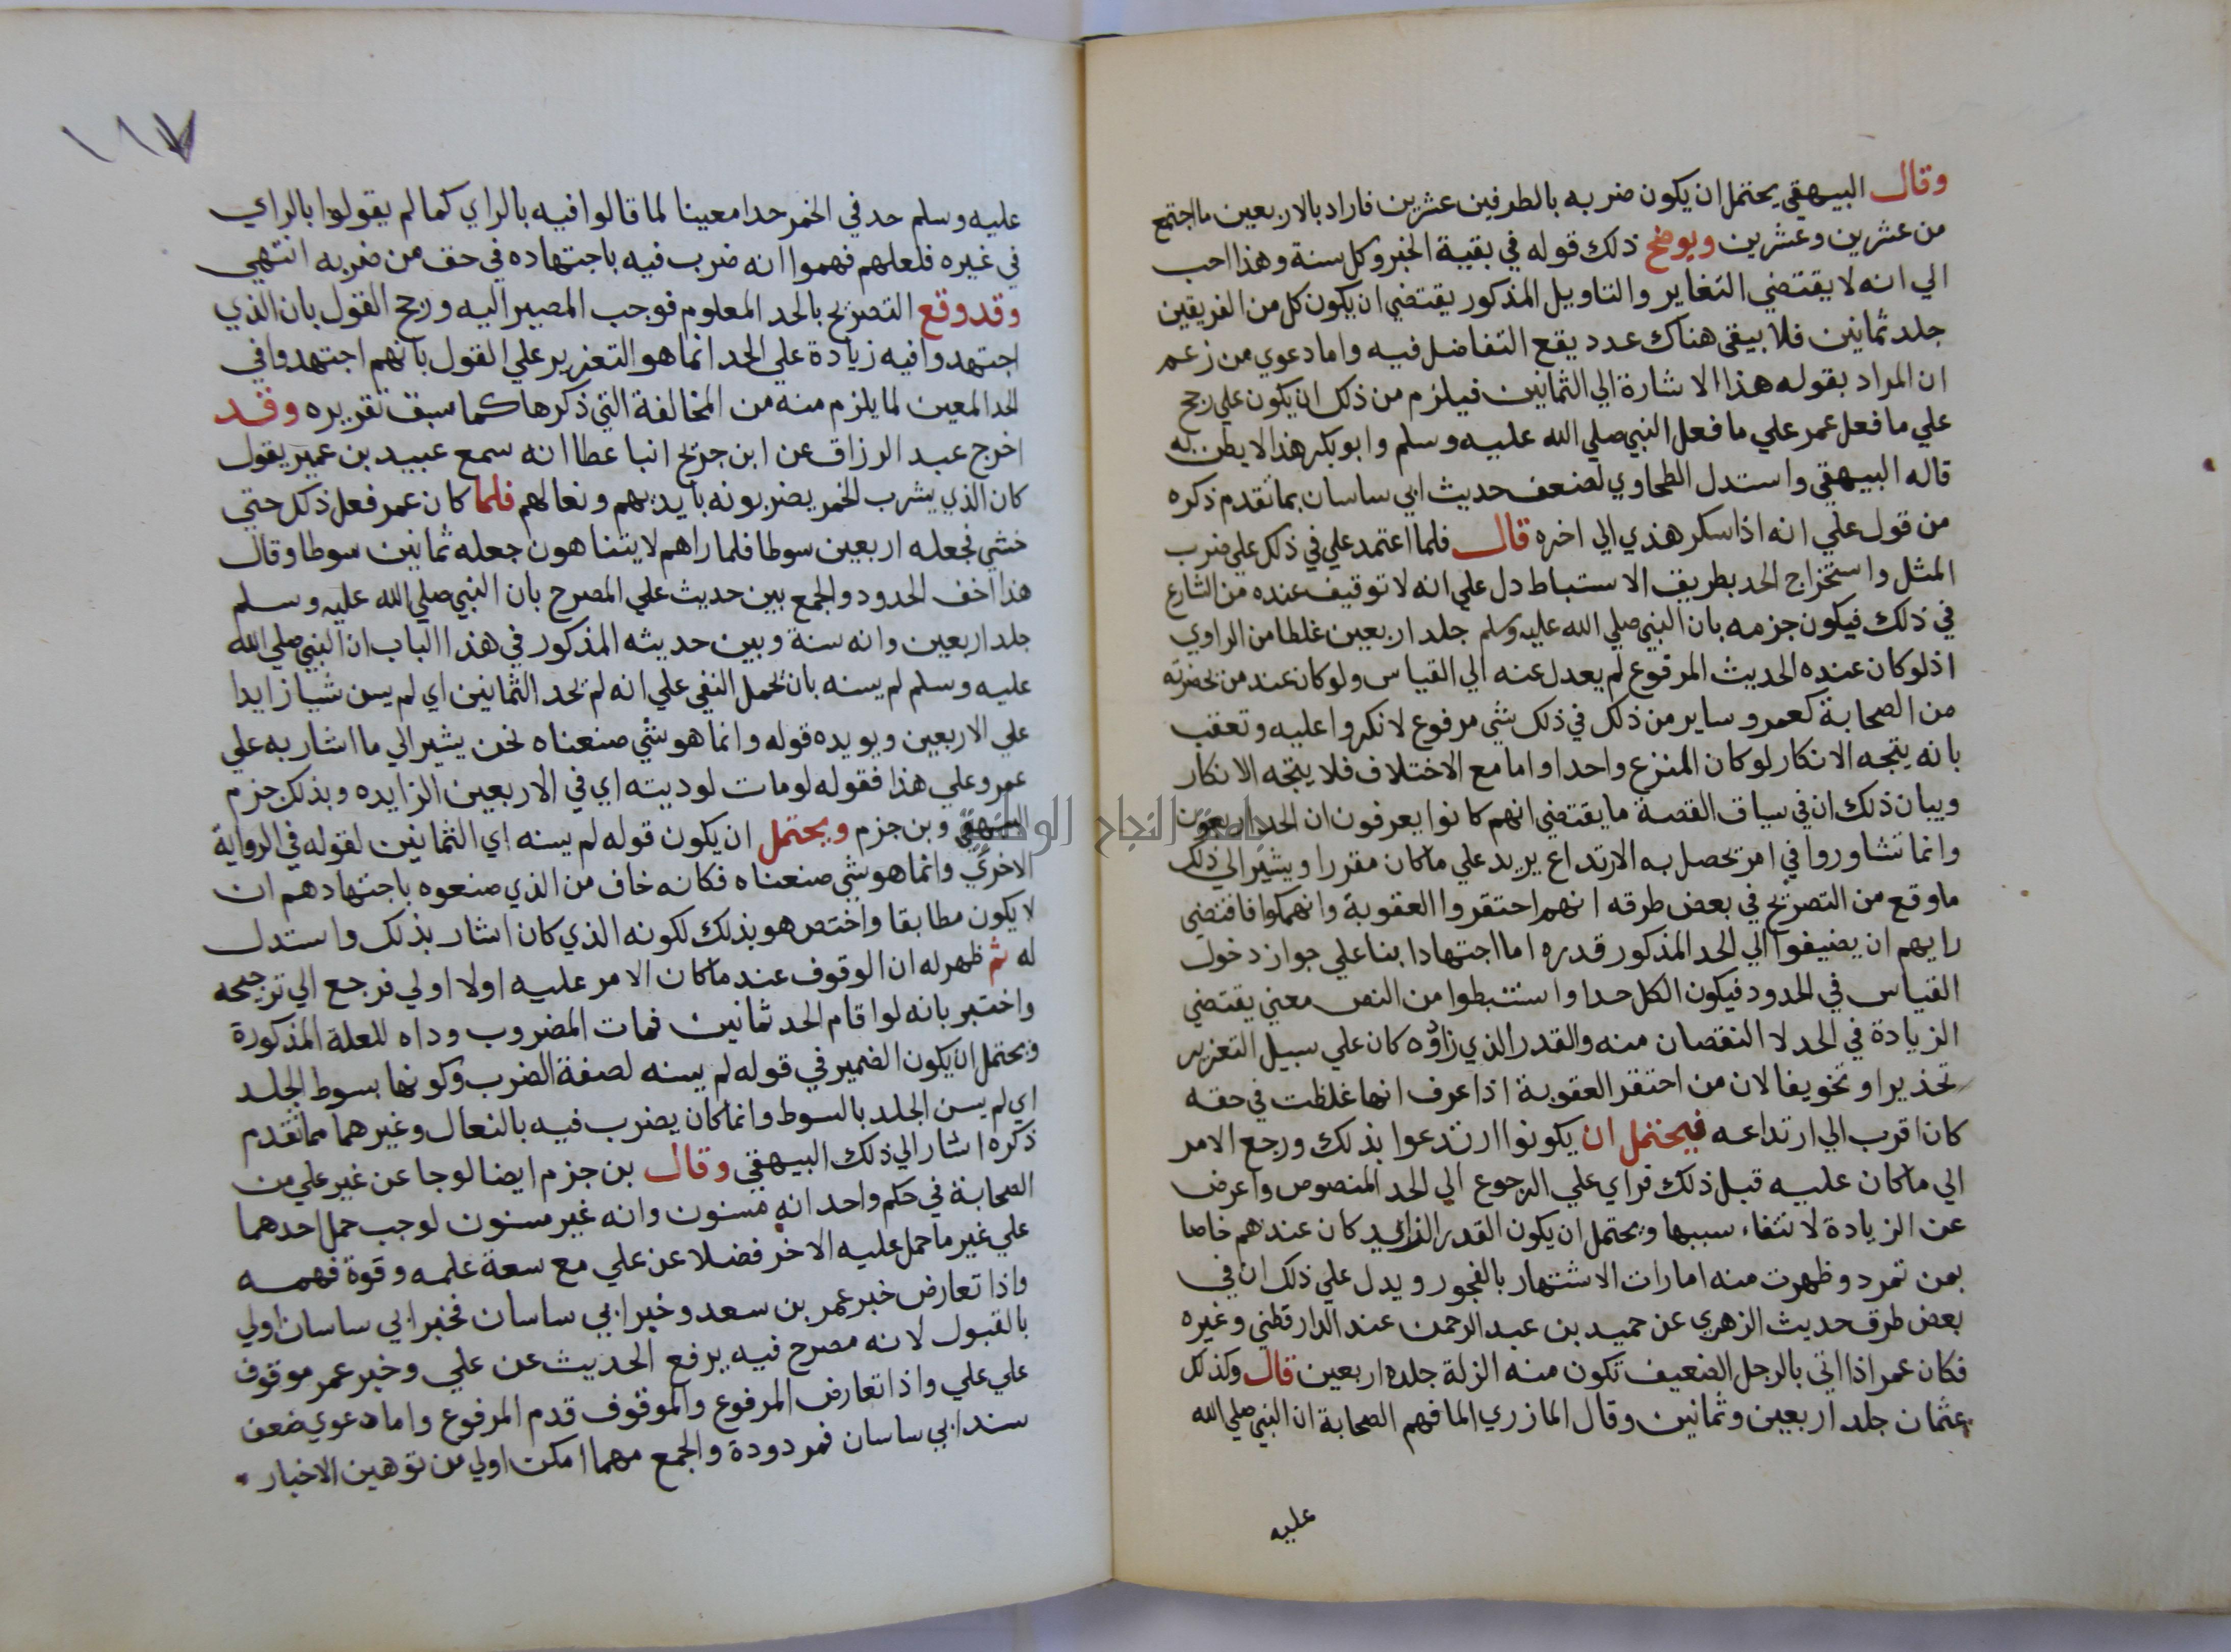 وقال البيهقي يحتمل ان يكون ضربه بالطرفين عشرين فاراد بالاربعين ما اجتمع
من عشرين وعشرين ويوضح ذلك قوله في بقية الخبر وكل سنة وهذا احب
الي انه لا يقتضي التغاير والتاويل المذكور يقتضي ان يكون كل من الفريقين
جلد ثمانين فلا يبقي هناك عدد يقع التفاضل فيه واما دعوي من زعم
ان المراد بقوله هذا الاشارة الي الثمانين فيلزم من ذلك ان يكون علي رجح
علي ما فعل عمر علي ما فعل النبي صلي الله عليه وسلم وابو بكر هذا لا يظن به
قاله البيهقي واستدل الطحاوي لضعف حديث ابي ساسان بما تقدم ذكره
من قول علي انه اذا سكر هذي الي اخره قال فلما اعتمد علي في ذلك علي ضرب
المثل واستخراج الحد بطريق الاستباط دل علي انه لا توقيف عنده من الشارع
في ذلك فيكون جزمه بان النبي صلي الله عليه وسلم جلد اربعين غلطا من الراوي
اذ لو كان عنده الحديث المرفوع لم يعدل عنه الي القياس ولو كان عند من بحضرته
من الصحابة كعمر وساير من ذلك في ذلك شي مرفوع لانكروا عليه وتعقب
بانه يتجه الانكار لو كان المنزع واحدا واما مع الاختلاف فلا يتجه الانكار
وبيان ذلك ان في سياق القصة ما يقتضي انهم كانوا يعرفون ان الحد اربعون
وانما تشاوروا في امر تحصل به الارتداع يزيد علي ما كان مقررا ويشير الي ذلك
ما وقع من التصريح في بعض طرقه انهم احتقروا العقوبة وانهمكوا فاقتضي
رايهم ان يضيفوا الي الحد المذكور قدره اما اجتهادا بنا علي جواز دخول
القياس في الحدود فيكون الكل حدا واستنبطوا من النص معني يقتضي
الزيادة في الحد لا النقصان منه والقدر الذي زادوه كان علي سبيل التعزير
تحذيرا وتخويفا لان من احتقر العقوبة اذا عرف انها غلظت في حقه
كان اقرب الي ارتداعه فيحتمل ان يكونوا ارتدعوا بذلك ورجع الامر
الي ما كان عليه قبل ذلك فراي علي الرجوع الي الحد المنصوص واعرض
عن الزيادة لانتفاء سببها ويحتمل ان يكون القدر الزايد كان عندهم خاصا
بمن تمرد وظهرت منه امارات الاشتهار بالفجور ويدل علي ذلك ان في
بعض طرق حديث الزهري عن حميد بن عبد الرحمن عند الدارقطني وغيره
فكان عمر اذا اتي بالرجل الضعيف تكون منه الزلة جلده اربعين قال وكذلك
عثمان جلد اربعين وثمانين وقال المازري الما فهم الصحابة ان النبي صلي الله
عليه
١١٧
عليه وسلم حد في الخمر حدا معينا لما قالوا فيه بالراي كما لم يقولوا بالراي
في غيره فلعلهم فهموا انه ضرب فيه باجتهاده في حق من ضربه انتهي
وقد وقع التصريح بالحد المعلوم فوجب المصير اليه ورجح القول بان الذي
اجتهدوا فيه زيادة علي الحد انما هو التعزير علي القول بانهم اجتهدوا في
الحد المعين لما يلزم منه من المخالفة التي ذكرها كما سبق تقريره وقد
اخرج عبد الرزاق عن ابن جريج انبا عطا انه سمع عبيد بن عمير يقول
كان الذي يشرب الخمر يضربونه بايديهم ونعالهم فلما كان عمر فعل ذلك حتي
خشي فجعله اربعين سوطا فلما راهم لا يتناهون جعله ثمانين سوطا وقال
هذا اخف الحدود والجمع بين حديث علي المصرح بان النبي صلي الله عليه وسلم
جلد اربعين وانه سنة وبين حديثه المذكور في هذا الباب ان النبي صلي الله
عليه وسلم لم يسنه بان يحمل النفي علي انه لم يحد الثمانين اي لم يسن شيا زايدا
علي الاربعين ويويده قوله وانما هو شي صنعناه نحن يشير الي ما اشار به علي
عمر وعلي هذا فقوله لو مات لوديته اي في الاربعين الزايده وبذلك جزم
البيهقي وبن حزم ويحتمل ان يكون قوله لم يسنه اي الثمانين لقوله في الرواية
الاخري وانما هو شي صنعناه فكانه خاف من الذي صنعوه باجتهادهم ان
لا يكون مطابقا واختص هو بذلك لكونه الذي كان اشار بذلك واستدل
له ثم ظهر له ان الوقوف عند ما كان الامر عليه اولا اولي فرجع الي ترجيحه
واختبر بانه لو اقام الحد ثمانين فمات المضروب وداه للعلة المذكورة
ويحتمل ان يكون الضمير في قوله لم يسنه لصفة الضرب وكونها بسوط الجلد
اي لم يسن الجلد بالسوط وانما كان يضرب فيه بالنعال وغيرهما مما تقدم
ذكره اشار الي ذلك البيهقي وقال بن حزم ايضا لو جا عن غير علي من
الصحابة في حكم واحد انه مسنون وانه غير مسنون لوجب حمل احدهما
علي غير ما حمل عليه الاخر فضلا عن علي مع سعة علمه وقوة فهمه
واذا تعارض خبر عمر بن سعد وخبر ابي ساسان فخبر ابي ساسان اولي
بالقبول لانه مصرح فيه برفع الحديث عن علي وخبر عمر موقوف
علي علي واذا تعارض المرفوع والموقوف قدم المرفوع واما دعوي ضعف
سند ابي ساسان فمردودة والجمع مهما امكن اولي من توهين الاخبار
جامعة النجاح الوطنية